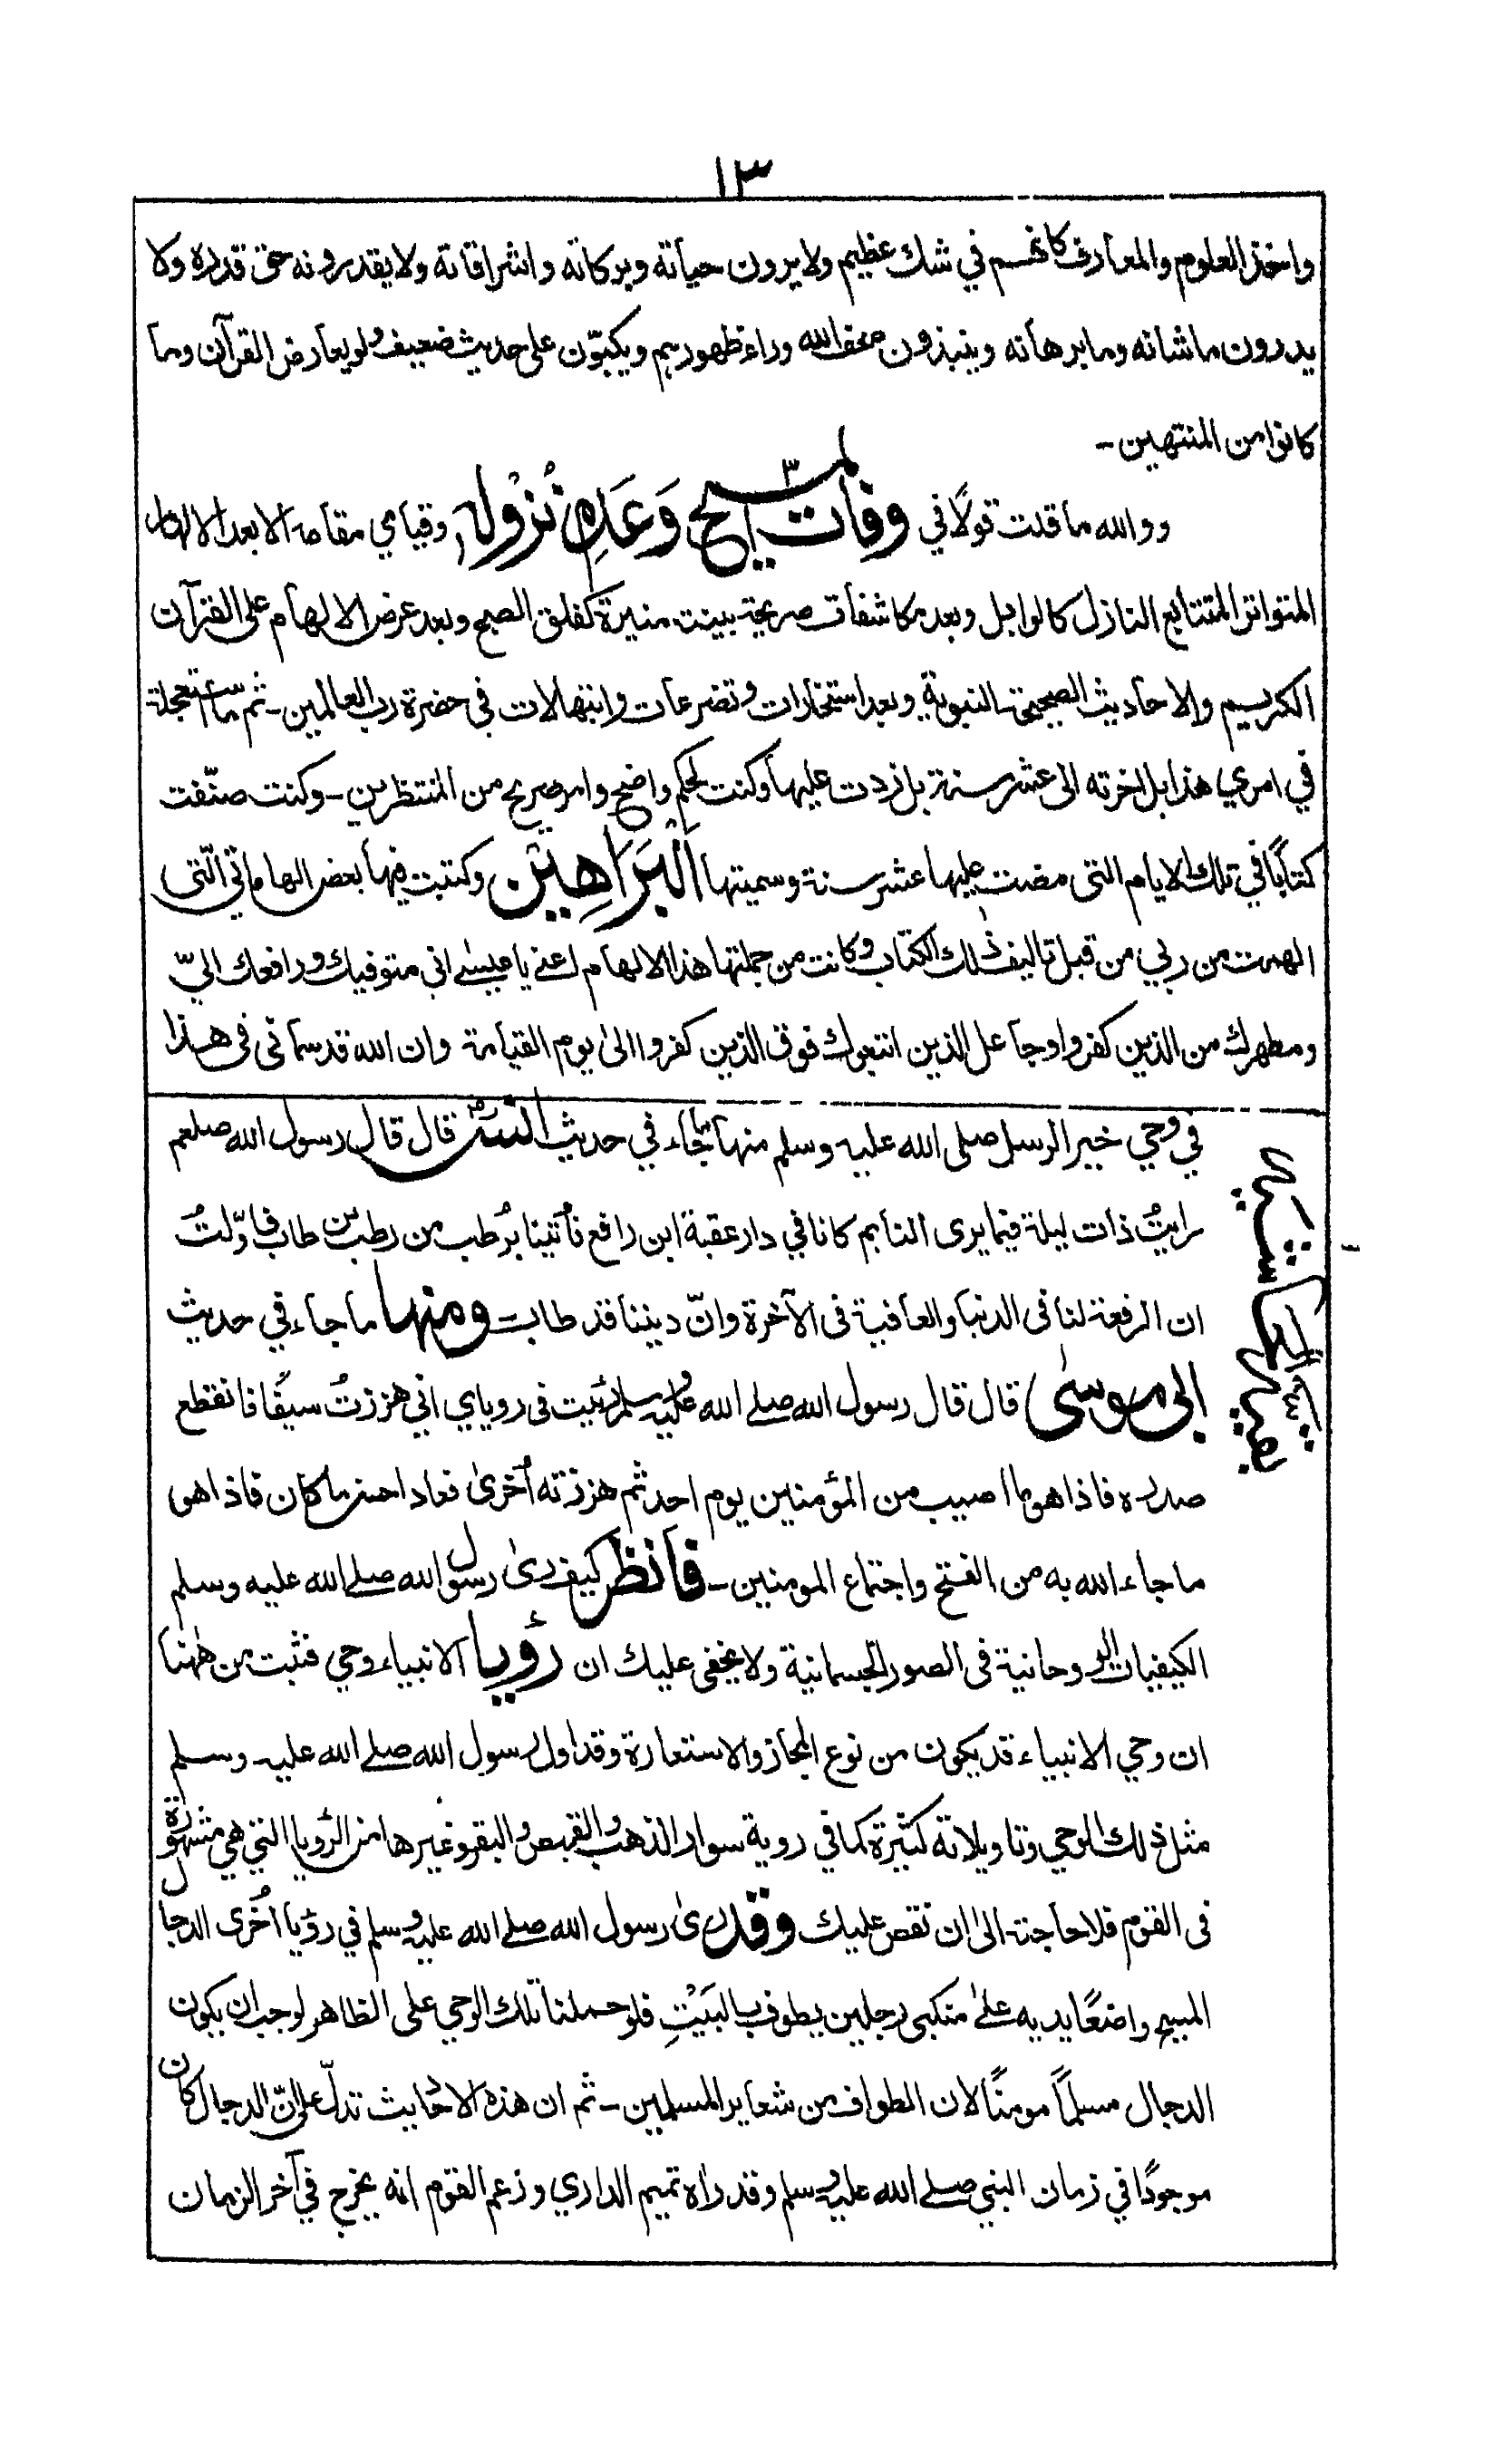 ١٣
واخذ العلوم والمعارف كانهم في شك عظيم ولا يرون حياته وبركاته واشراقاته ولا يقدرونه حق قدره ولا
يدرون ما شانه وما برهانه وينبذون صحف الله وراء ظهورهم ويكبّون على حديث ضعيف ولو يعارض القرآن وما
كانوا من المنتهين-
ووالله ما قلت قولًا في وفات المسيح وَعَدِم نُزُولِه وقيامي مقامه الا بعد الالهام
المتواتر المتتابع النازل كالوابل وبعد مكاشفات صريحة بينت منيرة كفلق الصبح وبعد عرض الالهام على القرآن
الكريم والاحاديث الصحيحة النبوية وبعد استخارات وتضرعات وابتهالات في حضرة رب العالمين- ثم ما استعجلت
في امري هذا بل اخرته الى عشر سنة بل زدت عليها وكنت لحكم واضح وامر صريح من المنتظرين- وكنت صنّفت
كتابًا في تلك الايام التي مضت عليها عشر سنة وسميتها البَرَاهِين وكتبت فيها بعض الهاماتي الّتي
الهمت من ربي من قبل تاليف ذلك الكتاب وكانت من جملتها هذا الالهام اعني يا عيسٰے اني متوفيك ورافعك اليّ
ومطهرك من الذين كفروا وجاعل الذين اتبعوك فوق الذين كفروا الىٰ يوم القيامة وان الله قد سماني في هذا
بقيه حاشيه
في وحي خير الرسل صلى الله عليه وسلم منها ما جاء في حديث انس قال قال رسول الله صلعم
رايتُ ذات ليلة فيما يرى النايم كانا في دار عقبة ابن رافع فأتينا برُطب من رطب بن طاب فاوّلتُ
ان الرفعة لنا في الدنيا والعافية في الآخرة وانّ ديننا قد طاب ومنها ما جاء في حديث
ابي موسىٰ قال قال رسول الله صلے الله عليه وسلم رئيت في روياي اني هززتُ سيفًا فانقطع
صدره فاذا هو ما اصيب من المؤمنين يوم احد ثم هززته أخرىٰ فعاد احسن ما كان فاذا هو
ما جاء الله به من الفتح واجتماع المومنين- فانظر كيف رىٰ رسول الله صلے الله عليه وسلم
الكيفيات الروحانية في الصور الجسمانية ولا يخفى عليك ان رؤيا الانبياء وحي فثبت من هٰهنا
ان وحي الانبياء قد يكون من نوع المجاز والاستعارة وقد اول رسول الله صلے الله عليه وسلم
مثل ذلك الوحي وتاويلاته كثيرة كما في روية سوار الذهب والقميص والبقر وغيرها من الرؤيا التي هي مشهورة
في القوم فلا حاجة الىٰ ان نقص عليك وقد رىٰ رسول الله صلے الله عليه وسلم في رؤيا اُخرى الدجال
المسيح واضعًا يديه علىٰ منكبي رجلين يطوف بالبَيْتِ فلو حملنا تلك الوحي على الظاهر لوجب ان يكون
الدجال مسلمًا مومنًا لان الطواف من شعاير المسلمين- ثم ان هذه الاحاديث تدلّ على انّ الدجال كان
موجودًا في زمان النبي صلے الله عليه وسلم وقد راه تميم الداري وزعم القوم انه يخرج في آخر الزمان